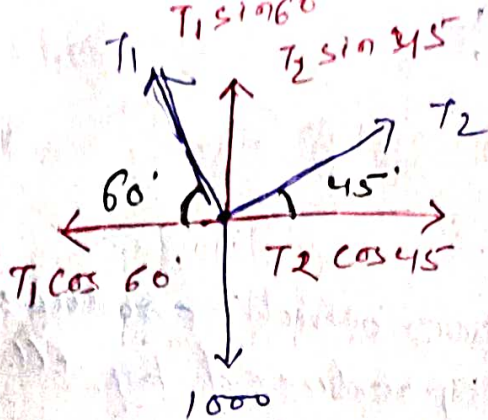 T₁ sin60
T₂ sin 45
T₁
T₂
60°
45°
T₁ cos 60°
T₂ cos 45
1000